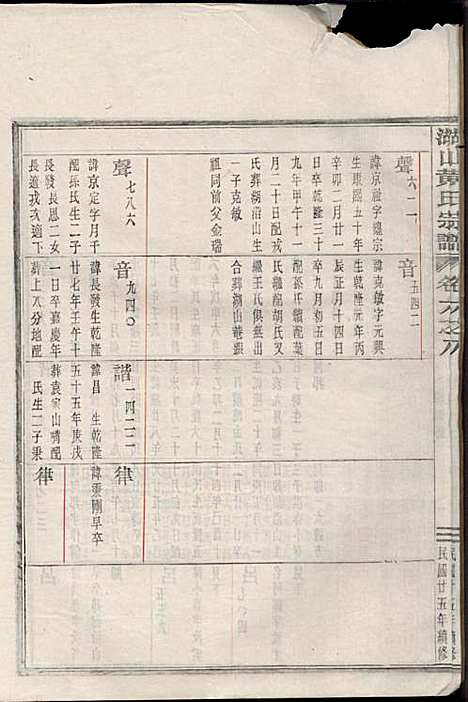 湖山黃氏宗譜
民國廿五年續修
聲 六二一
諱京祉字繩宗
生康熙五十年
辛卯二月廿一
日卒乾隆三十
九年甲午十一
月二十日配戎
氏葬湖沿山生
一子克敏
祖同前父金瑞
聲 七八六
諱京定字月千
配孫氏生二子
長發長恩二女
長適戎次適下
音 五四二
諱克敏字元興
生乾隆元年丙
辰正月十四日
卒九月初五日
配孫氏續配葉
氏雞配胡氏又
繼王氏俱葬
合葬湖山菴張
音 九四〇
諱長發生乾隆
廿七年壬午十
一日卒嘉慶年
葬上八分地配
諧 一四二二
諱昌 生乾隆
五十五年庚戌
葬袁家山嘴配
氏生二子秉
律
諱秉剛早卒
律